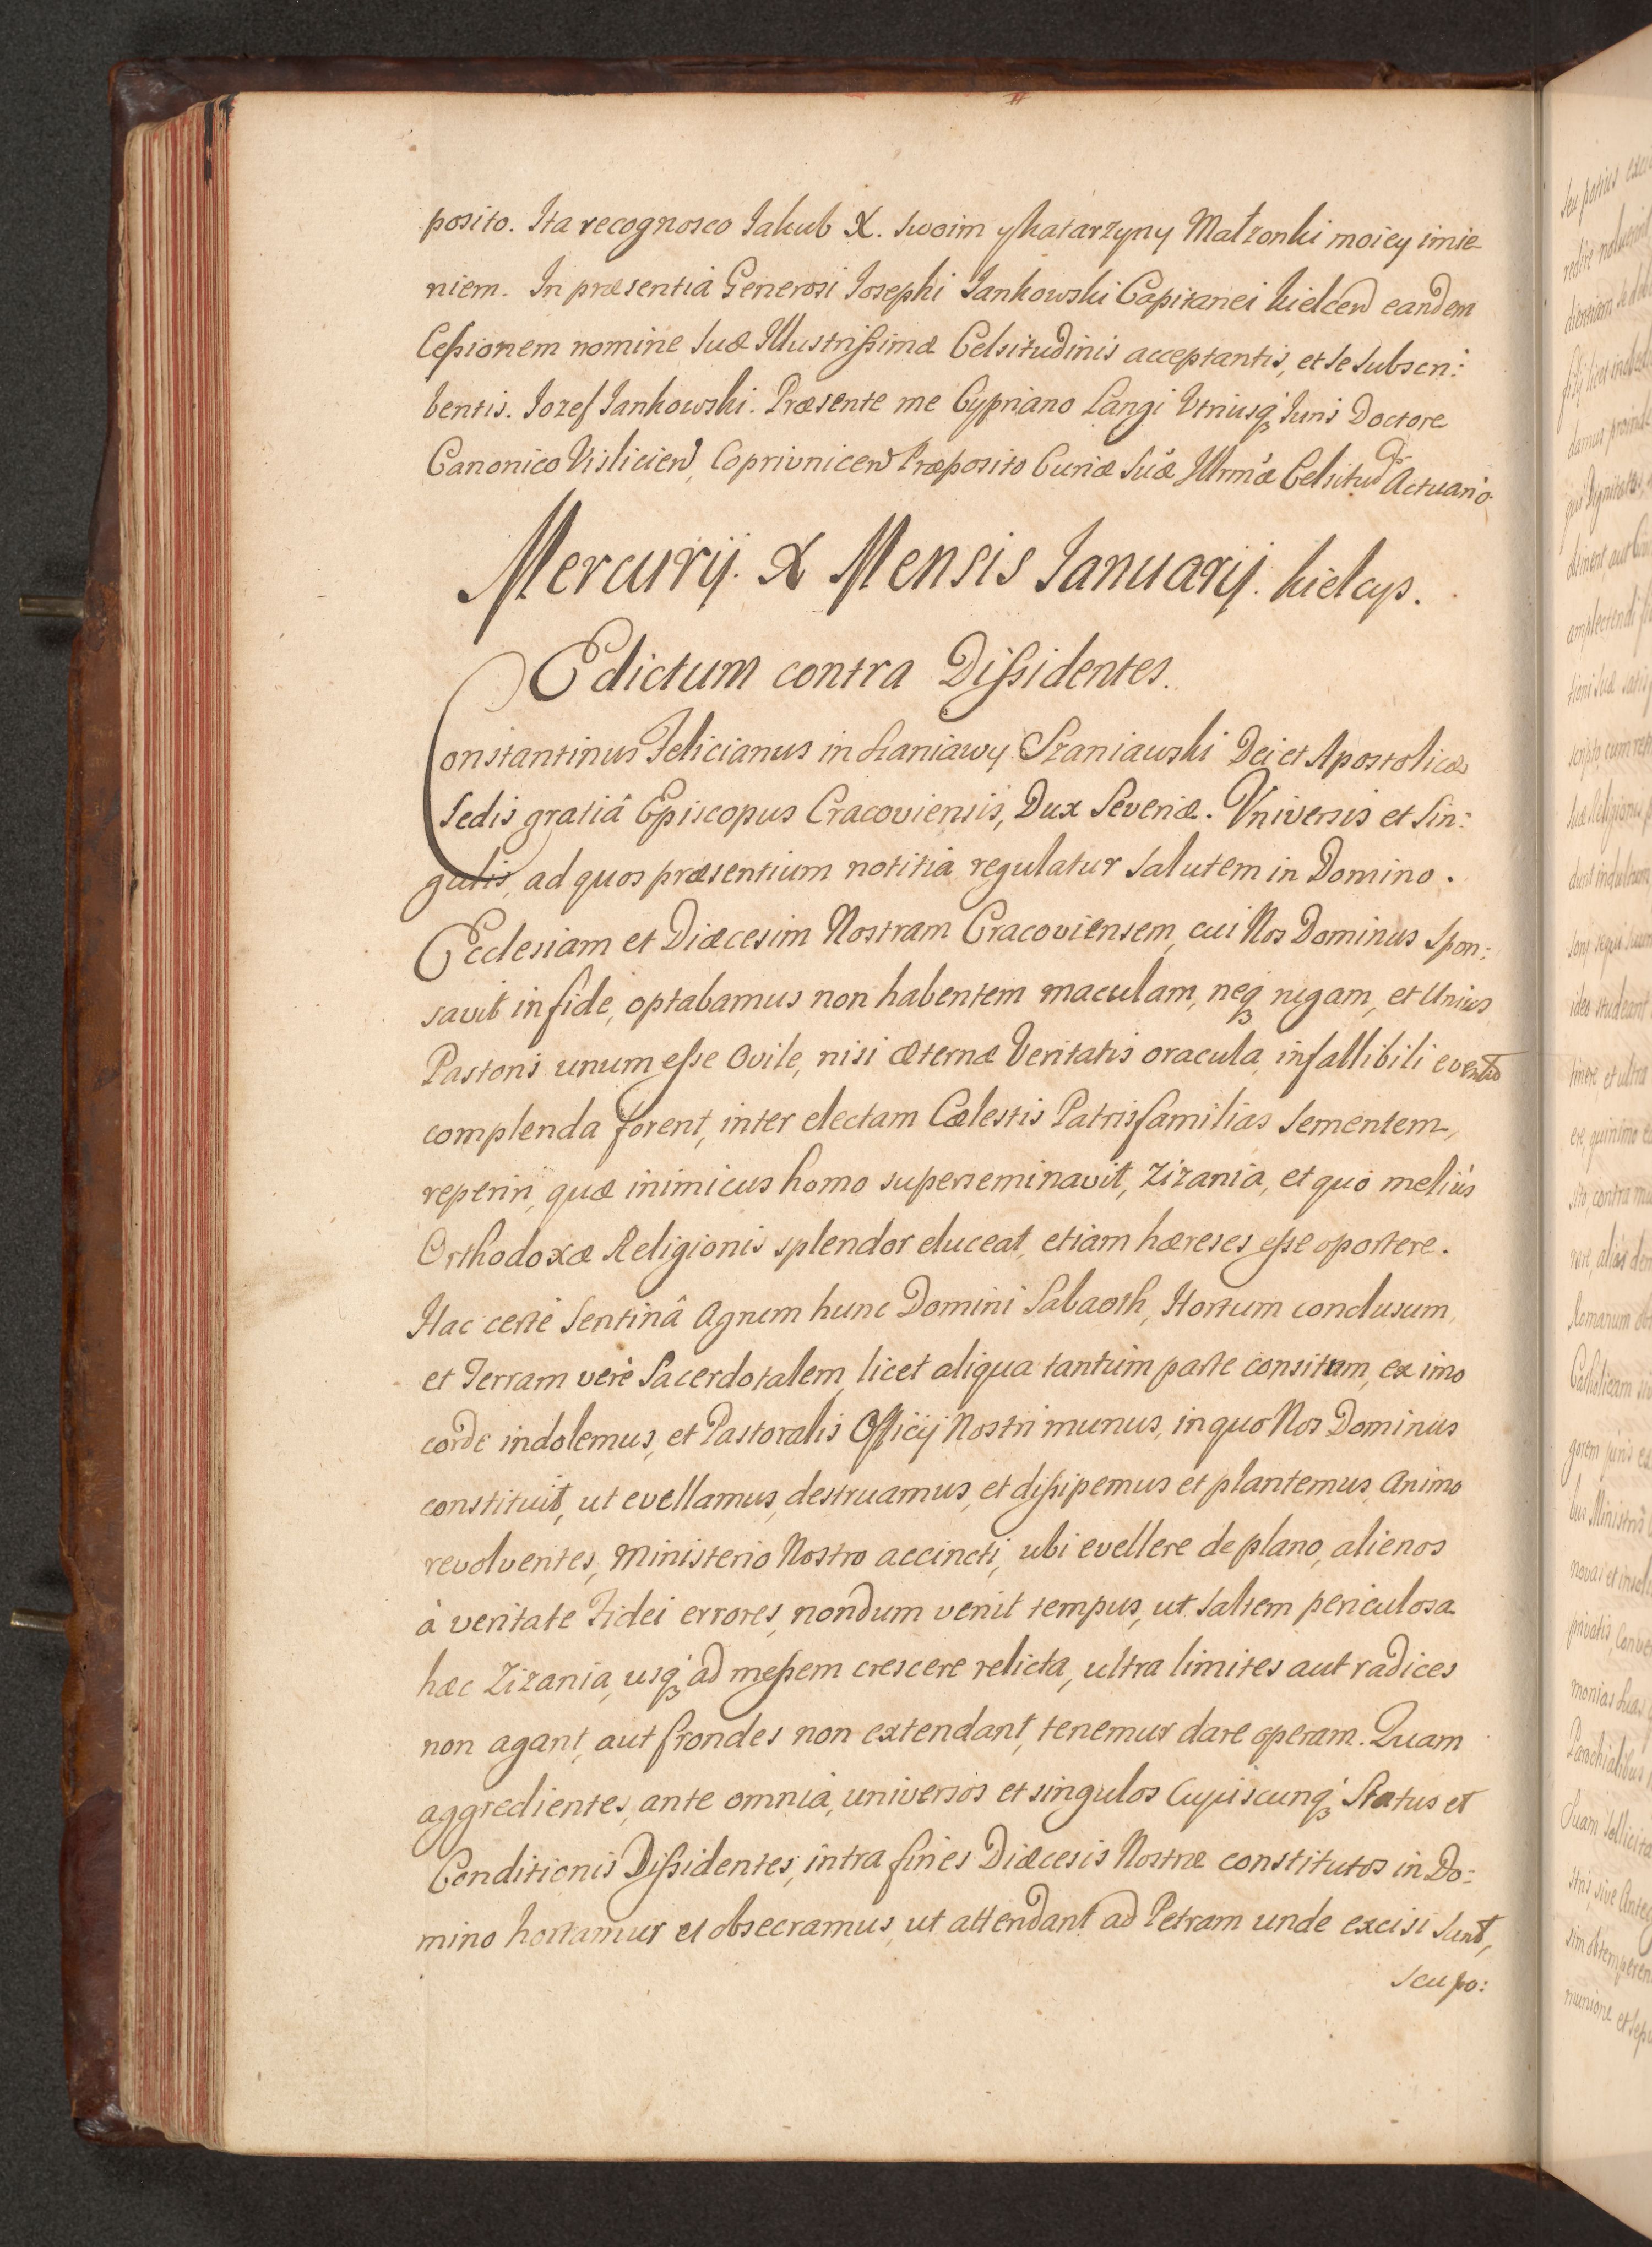 posito. Ita recognosco Iakub X. swoim y Katarzyny Małzonki moiey imie
niem. In præsentiâ Generosi Iosephi Iankowski Capitanei Kielcen eandem
Cessionem nomine Suæ Illustrissimæ Celsitudinis acceptantis, et se subscri:
bentis. Iozef Iankowski. Præsente me Cypriano Langi Utriusq Iuris Doctore
Canonico Vislicien, Coprivnicen Præposito Curiæ Suæ Illrmæ Celsitud Actuario.
Mercurij. X Mensis Ianuarij. Kielcys.
Edictum contra Dissidentes.
Constantinus Felicianus in Szaniawy Szaniawski Dei et Apostolicæ
Sedis gratiâ Episcopus Cracoviensis, Dux Severiæ. Vniversis et Sin:
gulis, ad quos præsentium notitia regulatur salutem in Domino.
Ecclesiam et Diæcesim Nostram Cracoviensem, cui Nos Dominus spon:
savit in fide, optabamus non habentem maculam, neq rugam, et Unius
Pastoris unum esse Ovile, nisi æternæ Veritatis oracula, infallibili eventu
complenda forent, inter electam Cælestis Patrisfamilias sementem,
reperiri, quæ inimicus homo superseminavit, Zizania, et quò meliùs
Orthodoxæ Religionis splendor eluceat, etiam hæreses esse oportere.
Hac certè Sentinâ Agrum hunc Domini Sabaoth, Hortum conclusum,
et Terram verè Sacerdotalem, licet aliqua tantùm parte consitum, ex imo
corde indolemus, et Pastoralis Officij Nostri munus, in quo Nos Dominus
constituit, ut evellamus, destruamus, et dissipemus et plantemus, Animo
revolventes, Ministerio Nostro accincti, ubi evellere de plano, alienos
à veritate Fidei errores, nondum venit tempus, ut saltem periculosa
hæc Zizania, usq ad messem crescere relicta, ultra limites aut radices
non agant, aut frondes non extendant, tenemur dare operam. Quam
aggredientes, ante omnia, universos et singulos Cujuscunq Status et
Conditionis Dissidentes, intra fines Diæcesis Nostræ constitutos in Do:
mino hortamur et obsecramus, ut attendant ad Petram unde excisi sunt,
seu po: